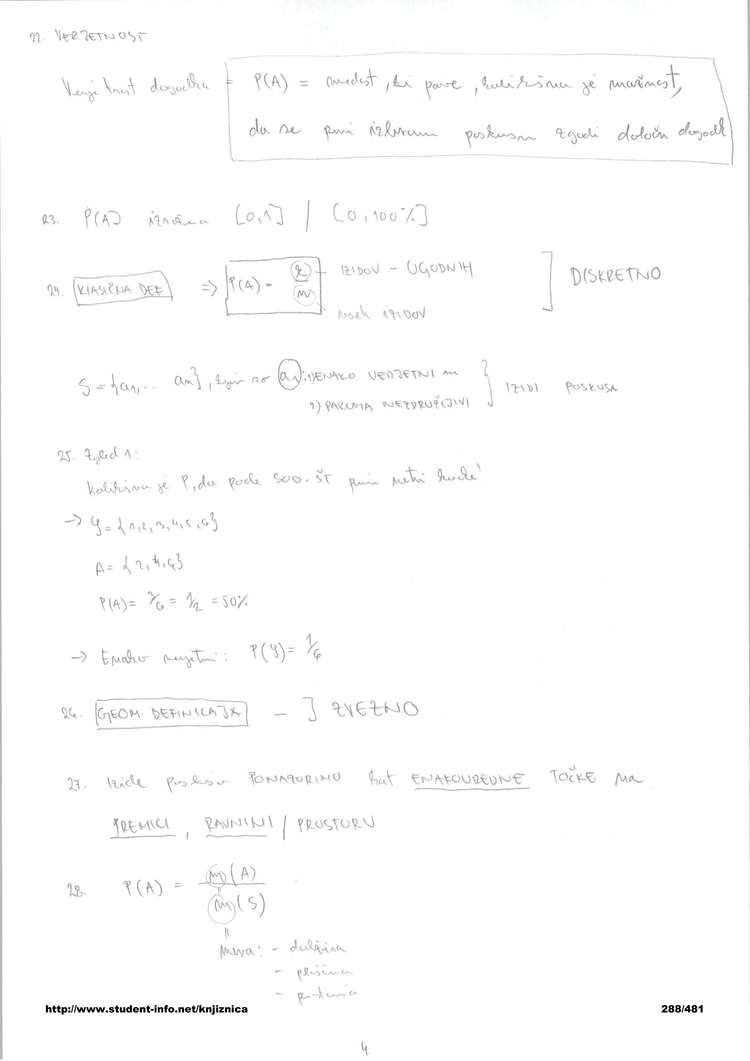 22. VERJETNOST
Verjetnost dogodka = P(A) = , ki pove, kolikšna je možnost,
da se pri izbranem poskusu zgodi določen dogodk
23. P(A) [0,1] / [0,100%]
24. KLASIČNA DEF => P(A) = IZIDOV - UGODNIH ] DISKRETNO
vseh IZIDOV
S = {a1,... an}, kjer so a1: 1) ENAKO VERJETNI in } IZIDI POSKUSA
2) PAROMA NEZDRUŽLJIVI
25. Zgled 1:
Kolikšna je P, da pade SOD. ŠT pri metu kocke!
-> Y = {1,2,3,4,5,6}
A = {2,4,6}
P(A) = 3/6 = 1/2 = 50%
-> Enako verjetni: P(Y) = 1/6
26. GEOM. DEFINICIJA - ] ZVEZNO
27. Izide poskusov PONAZORIMO kot ENAKOVREDNE TOČKE na
PREMICI, RAVNINI / PROSTORU
28. P(A) = m(A)
m(S)
"
mera: - dolžina
- ploščina
http://www.student-info.net/knjiznica 288/481
4